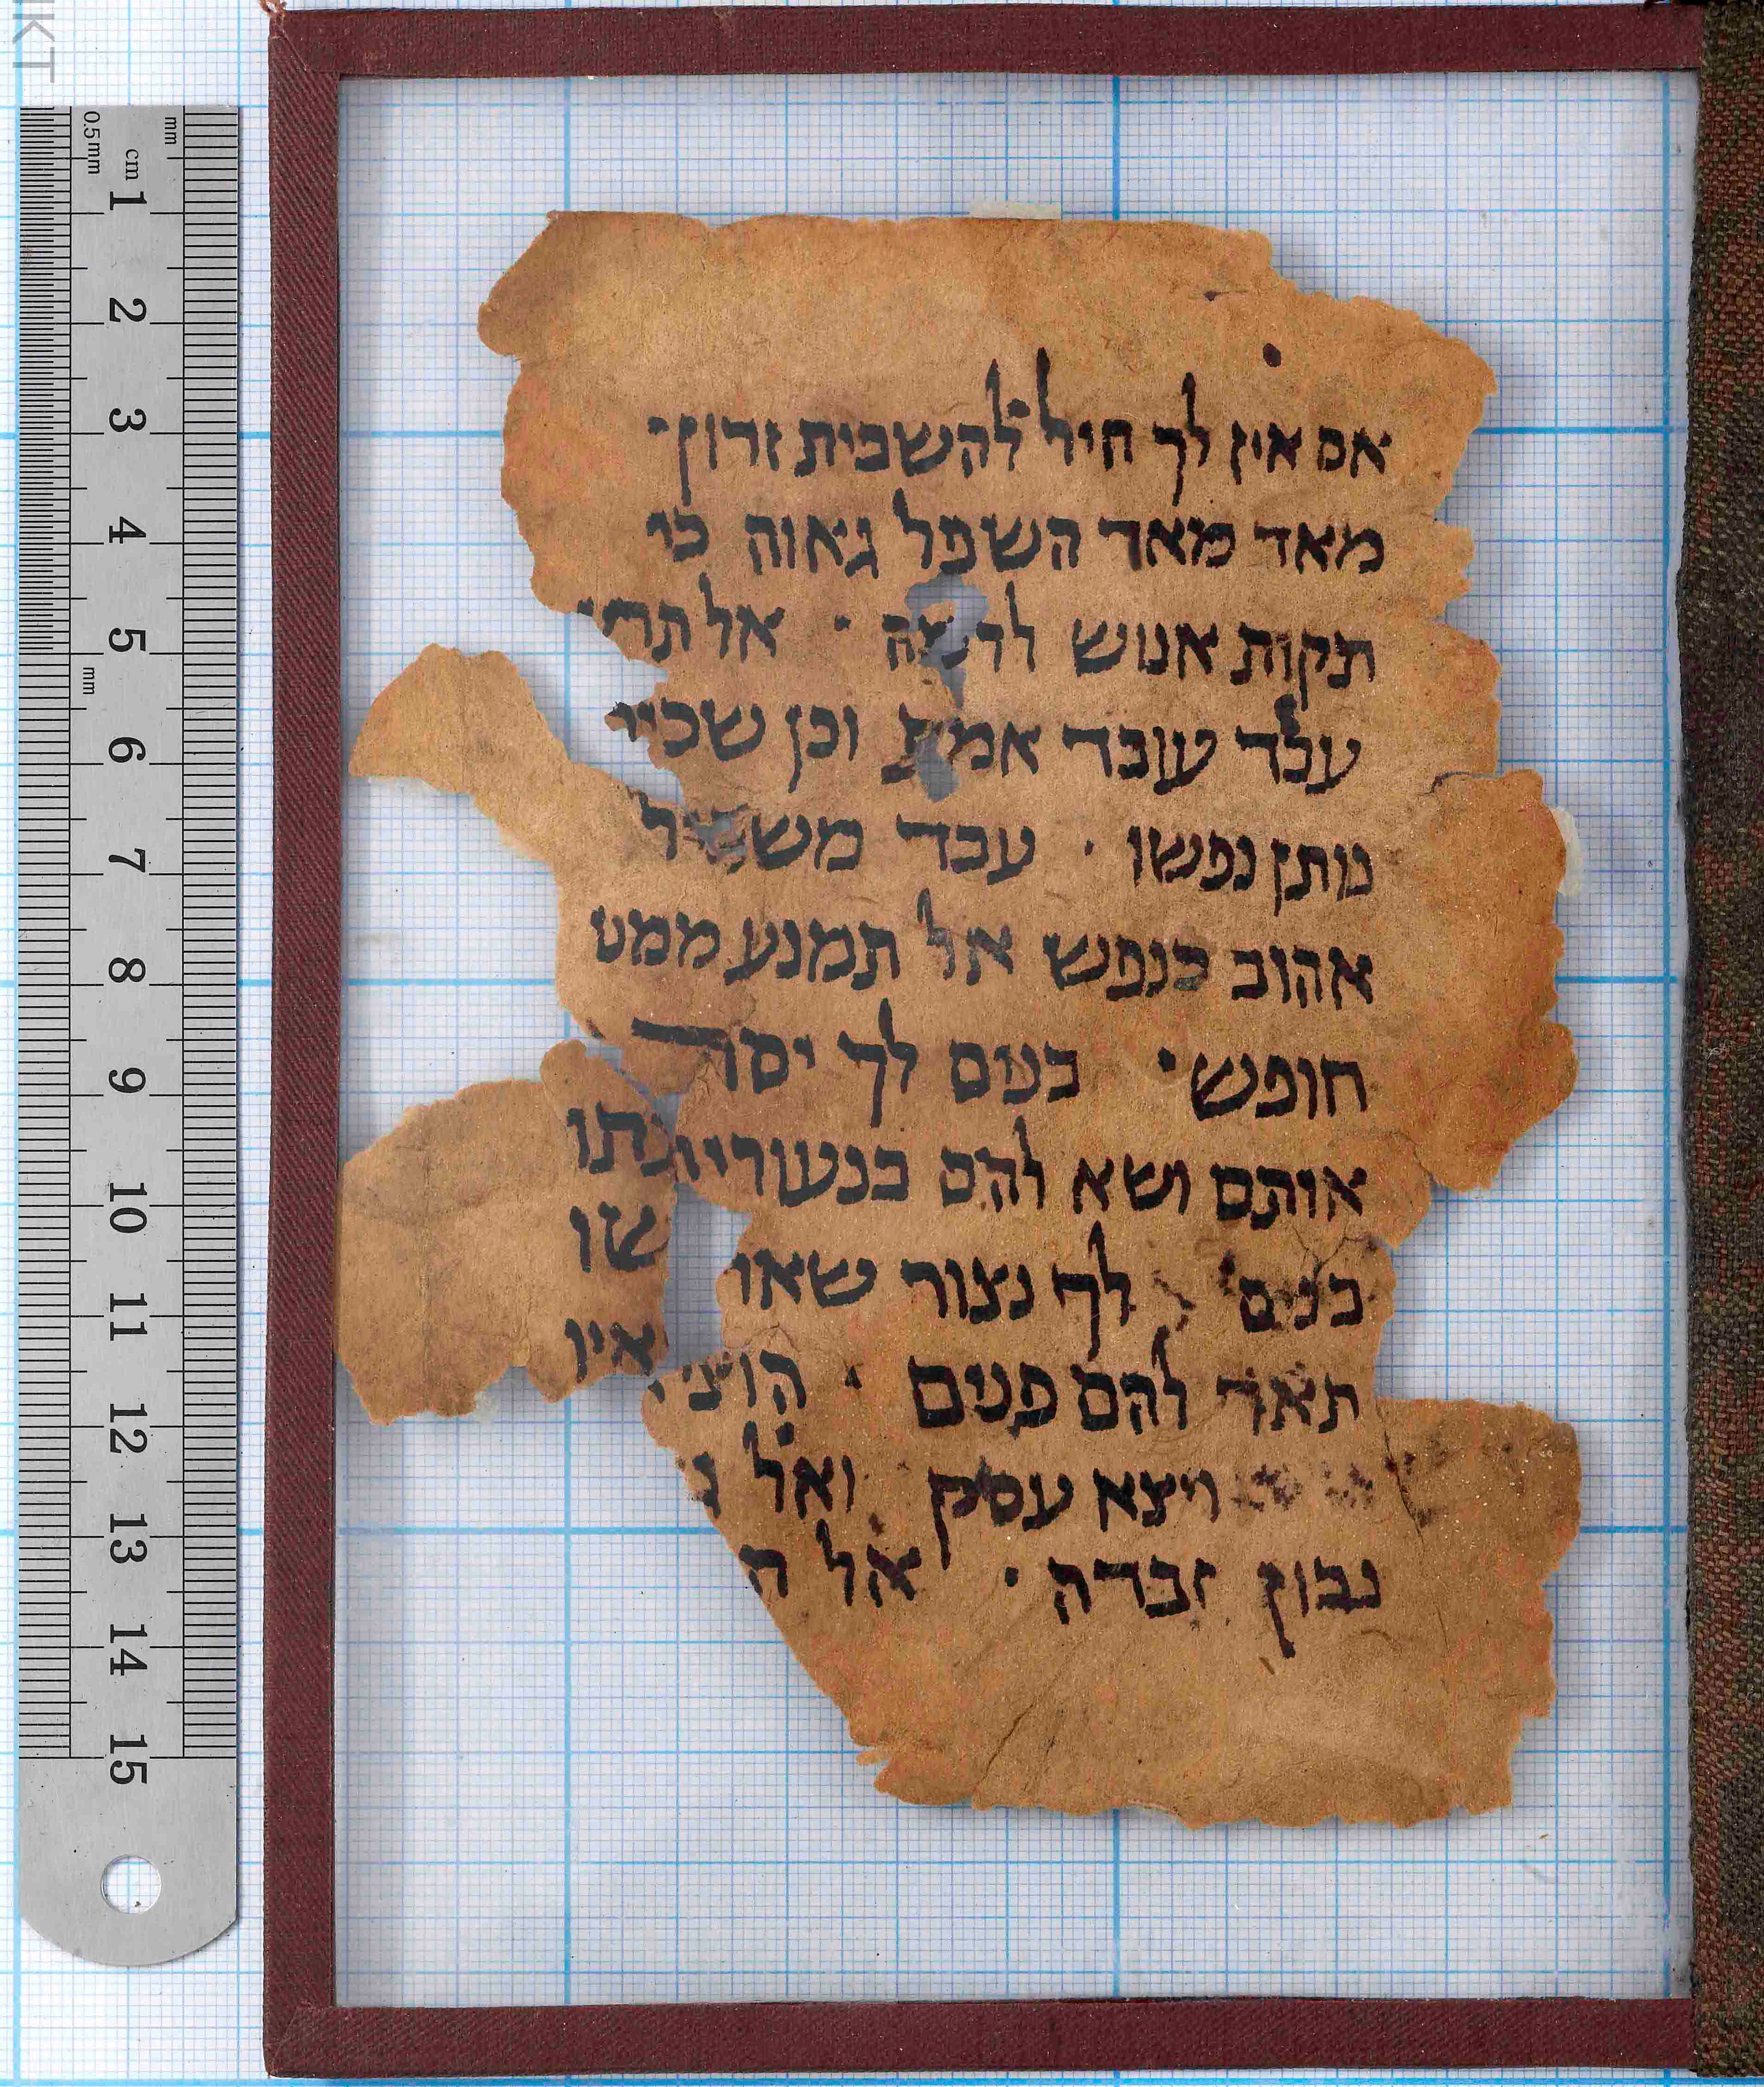 אם אין לך חיל להשבית זרון·
מאד מאד השפל גאוה כי
תקות אנוש לרמה · אל תרע
עבד עובד אמת וכן שכיר
נותן נפשו · עבד משכיל
אהוב כנפש אל תמנע ממנו
חופש · בנים לך יסר
אותם ושא להם בנעוריותו
בנים לך נצור שארו
תאר להם פנים · הוצי אין
ויצא עסק ואל ג
נבון זבדה · אל ה
cm 1 2 3 4 5 6 7 8 9 10 11 12 13 14 15
0.5mm
mm
mm